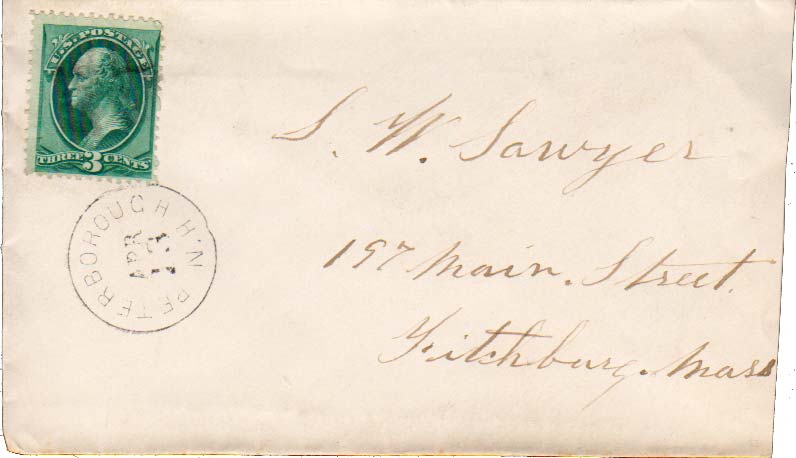 U.S. POSTAGE
THREE 3 CENTS
PETERBOROUGH H.N.
APR
S. W. Sawyer
197 Main. Street.
Fitchburg. Mass